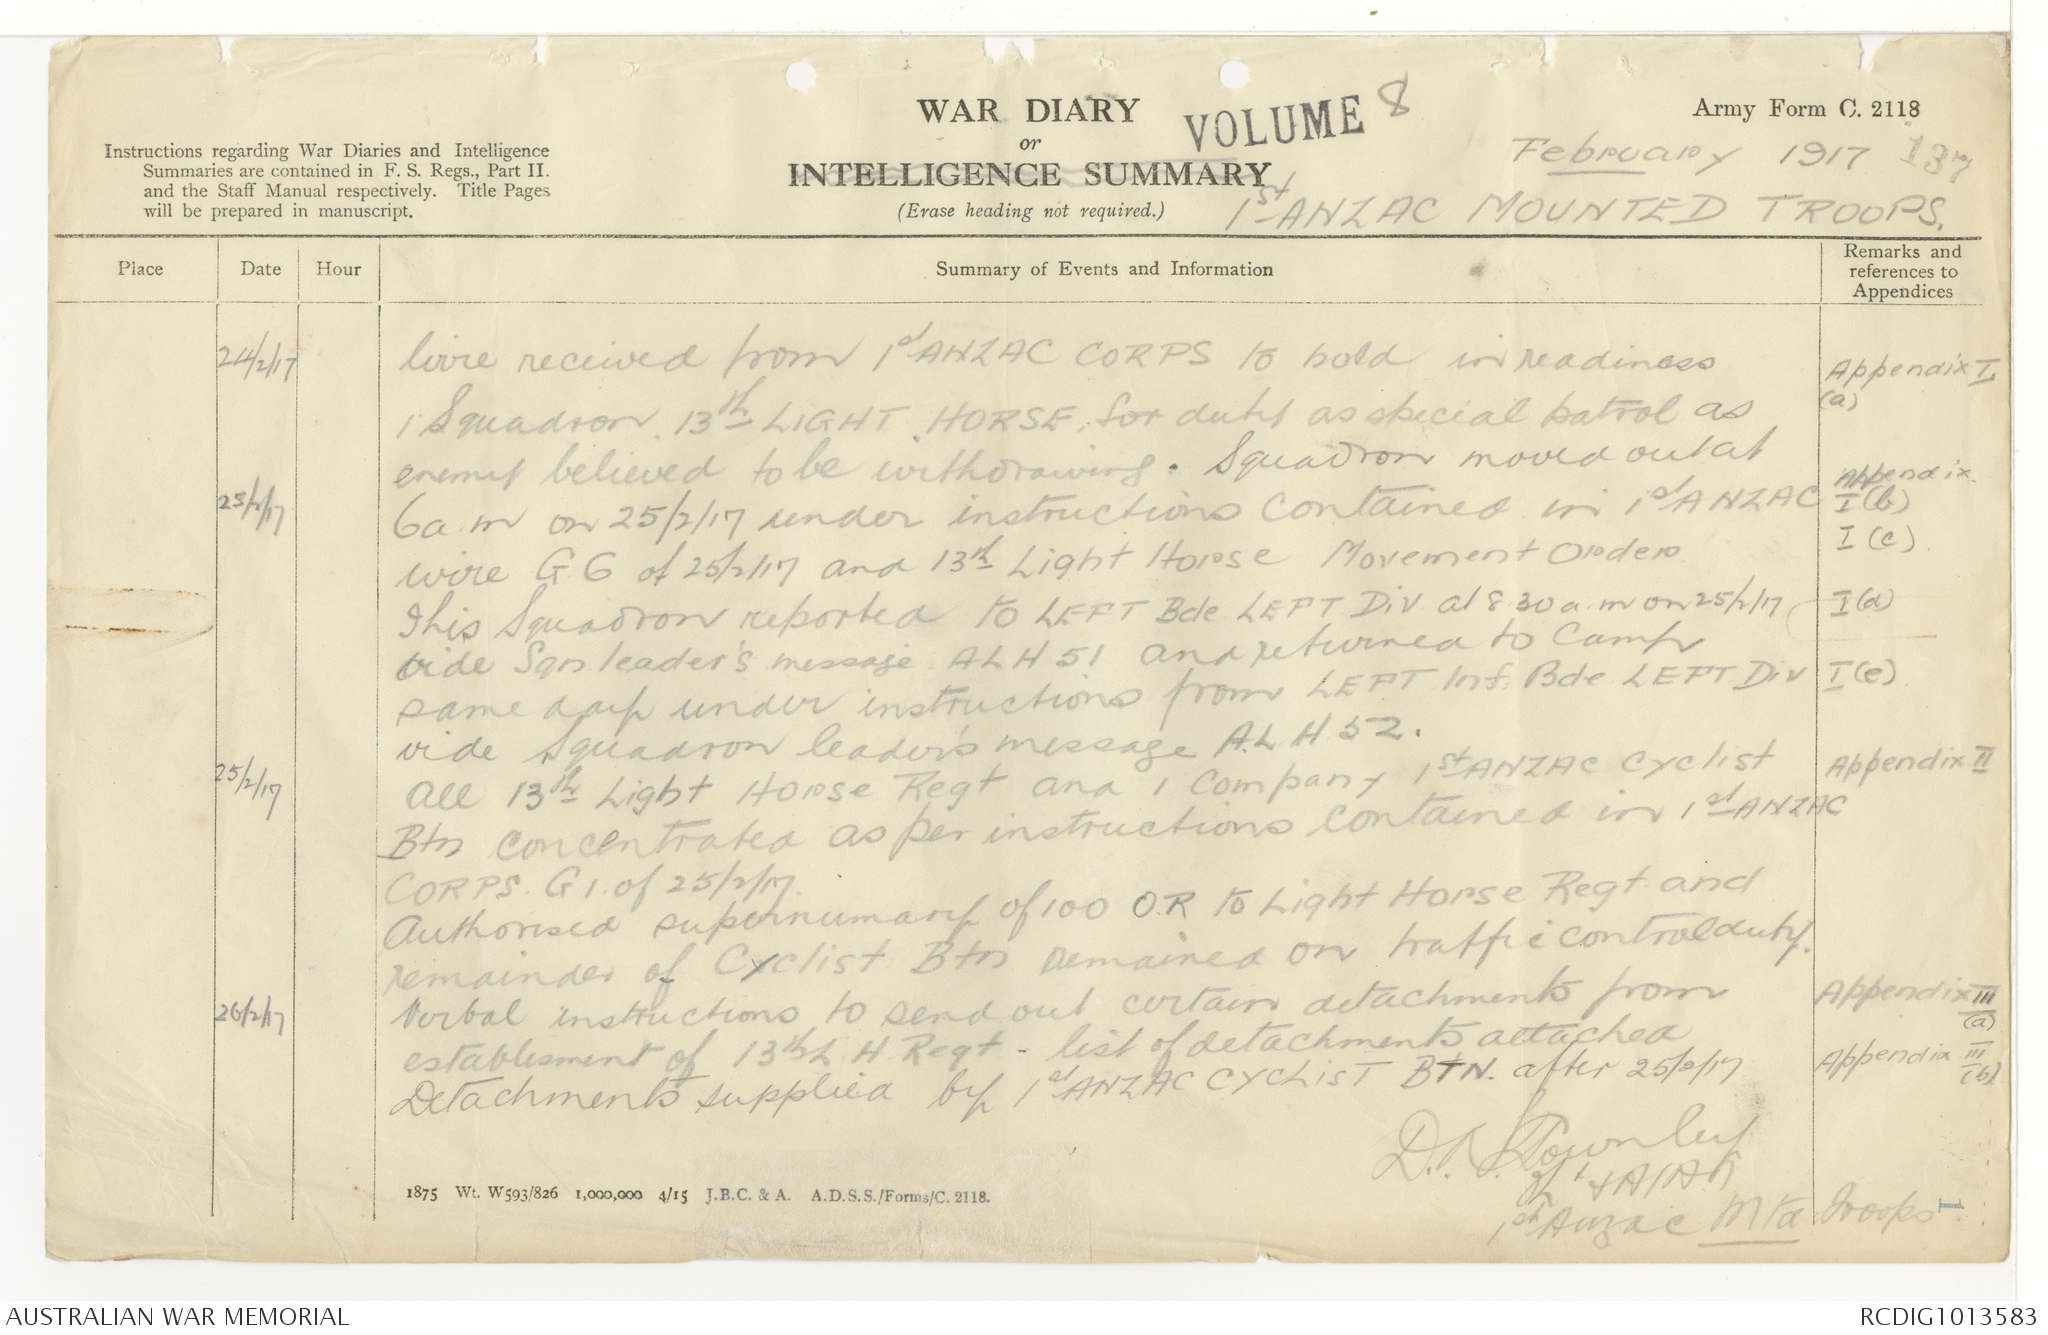 WAR DIARY
or
INTELLIGENCE SUMMARY
(Erase heading not required.)
VOLUME 8
Army Form C. 2118
Instructions regarding War Diaries and Intelligence
Summaries are contained in F. S. Regs., Part II.
and the Staff Manual respectively. Title Pages
will be prepared in manuscript.
February 1917 137
1st ANZAC MOUNTED TROOPS.
Place Date Hour Summary of Events and Information Remarks and references to Appendices
24/2/17 Wire received from 1st ANZAC CORPS to hold in readiness Appendix I
1 Squadron 13th LIGHT HORSE for duty as special patrol as (a)
enemy believed to be withdrawing. Squadron moved out at Appendix
25/2/17 6 a m on 25/2/17 under instructions contained in 1st ANZAC I (b)
wire G 6 of 25/2/17 and 13th Light Horse Movement Order I (c)
This Squadron reported to LEFT Bde LEFT Div at 8 30 a m on 25/2/17 I (d)
vide Sqn leader's message ALH 51 and returned to Camp
same day under instructions from LEFT Inf. Bde LEFT Div I (e)
vide Squadron leader's message A.L H 52.
25/2/17 All 13th Light Horse Regt and 1 Company 1st ANZAC Cyclist Appendix II
Btn concentrated as per instructions contained in 1st ANZAC
CORPS. G 1. of 25/2/17.
Authorised supernumary of 100 O.R to Light Horse Regt and
remainder of Cyclist Btn remained on traffic control duty.
26/2/17 Verbal instructions to send out certain detachments from Appendix III (a)
establisment of 13th L H Regt - list of detachments attached
Detachments supplied by 1st ANZAC CYCLIST BTN. after 25/2/17 Appendix III (b)
Townley
1st Anzac Mtd Troops
1875 Wt. W593/826 1,000,000 4/15 J.B.C. & A. A.D.S.S./Forms/C. 2118.
1
AUSTRALIAN WAR MEMORIAL
RCDIG1013583